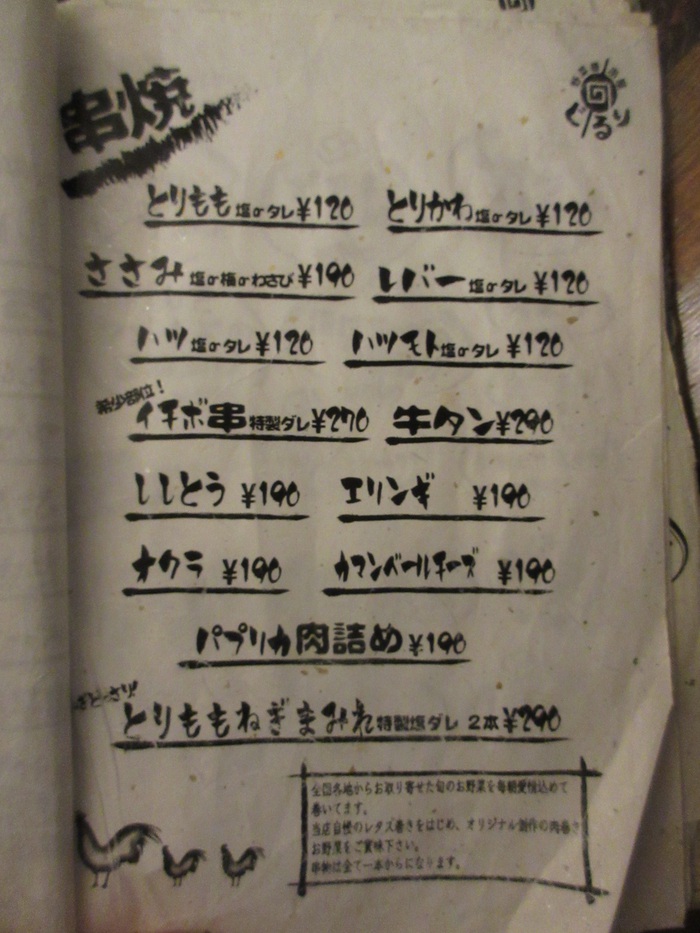 串焼
ぐるり
とりもも 塩orタレ ¥120 とりかわ 塩orタレ ¥120
ささみ 塩or梅orわさび ¥190 レバー 塩orタレ ¥120
ハツ 塩orタレ ¥120 ハツモト 塩orタレ ¥120
希少部位!
イチボ串 特製ダレ ¥270 牛タン ¥290
ししとう ¥190 エリンギ ¥190
オクラ ¥190 カマンベールチーズ ¥190
パプリカ肉詰め ¥190
とりももねぎまみれ 特製塩ダレ 2本 ¥290
全国各地からお取り寄せた旬のお野菜を毎朝愛情込めて
巻いてます。
当店自慢のレタス巻きをはじめ、オリジナル創作の肉巻き
お野菜をご賞味下さい。
串物は全て一本からになります。